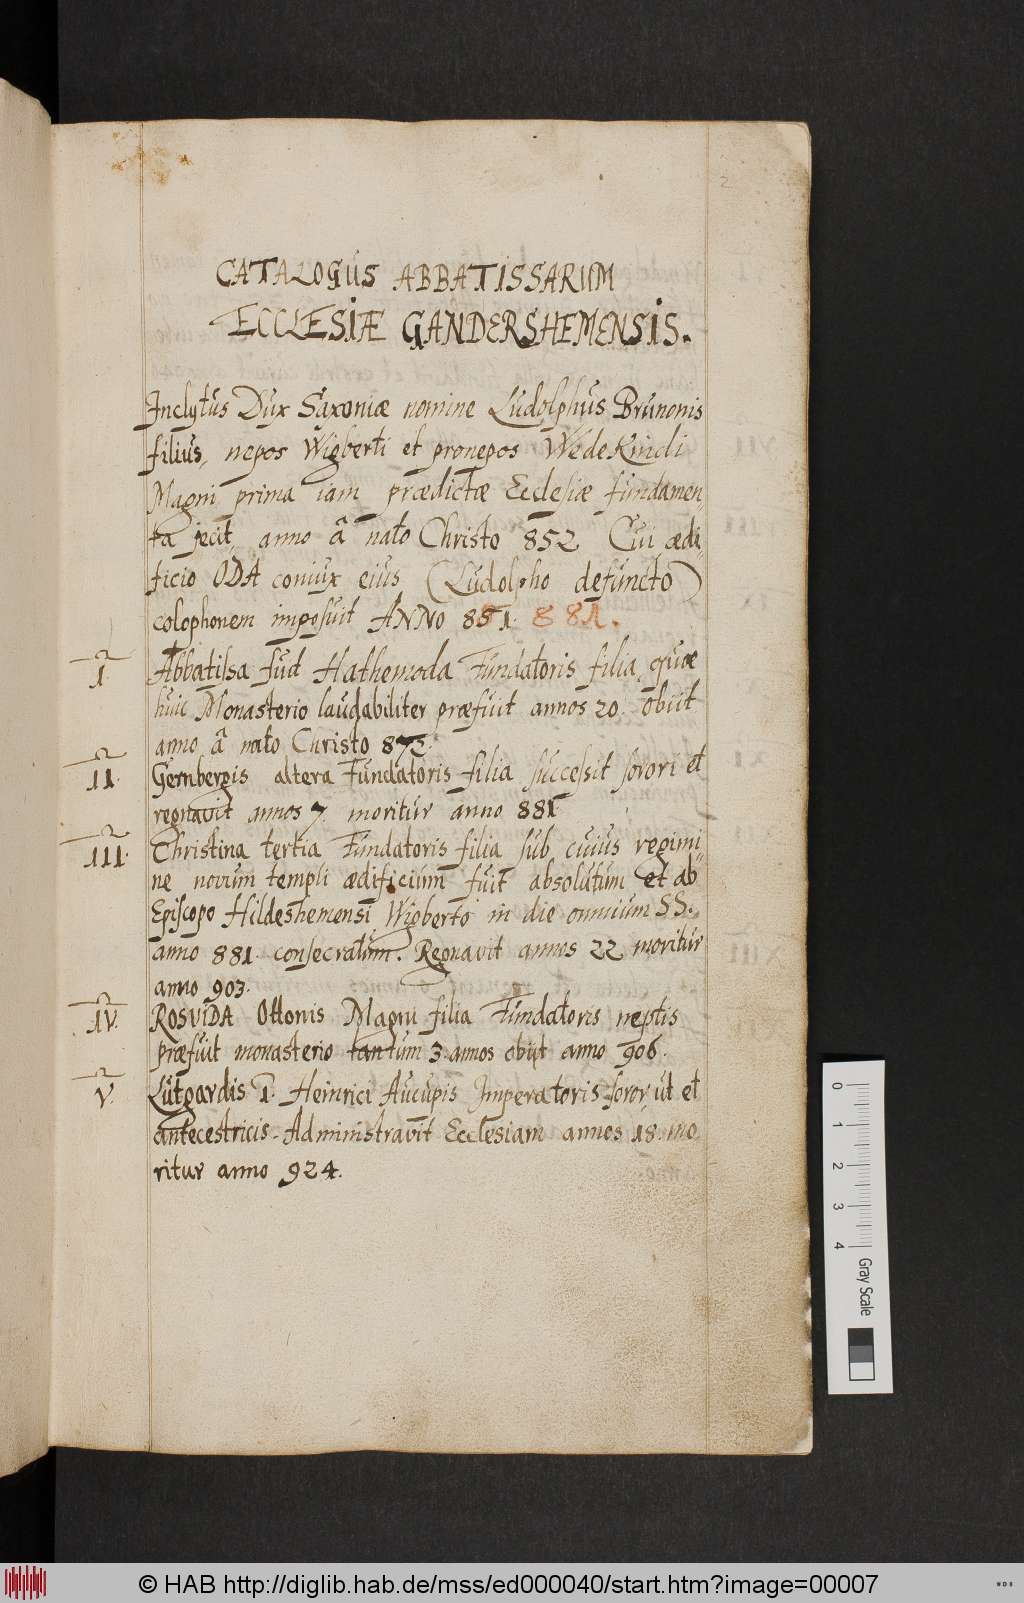 2
CATALOGUS ABBATISSARUM
ECCLESIÆ GANDERSHEMENSIS.
Inclytus Dux Saxoniæ nomine Ludolphus Brunonis
filius, nepos Wigberti et pronepos Wedekindi
Magni prima iam prædictæ Ecclesiæ fundamen,
ta jecit, anno â nato Christo 852 Cui ædi,
ficio ODA coniux eius (Ludolpho defuncto)
colophonem imposuit ANNO 851. 881.
I Abbatissa fuit Hathemoda Fundatoris filia, quæ
huic Monasterio laudabiliter præfuit annos 20. obiit
anno â nato Christo 873.
II. Gernbergis altera Fundatoris filia successit sorori et
regnavit annos 7. moritur anno 881
III. Christina tertia Fundatoris filia sub cuius regimi,
ne novum templi ædificium fuit absolutum et ab
Episcopo Hildeshemensi Wigberto in die omnium SS.
anno 881. consecratum. Regnavit annos 22 moritur
anno 903.
IV. ROSVIDA Ottonis Magni filia Fundatoris neptis
præfuit monasterio tantum 3 annos obijt anno 906.
V. Lutgardis I. Heinrici Aucupis Imperatoris soror, ut et
antecestricis. Administravit Ecclesiam annos 18. mo
ritur anno 924.
0 1 2 3 4 Gray Scale
© HAB http://diglib.hab.de/mss/ed000040/start.htm?image=00007